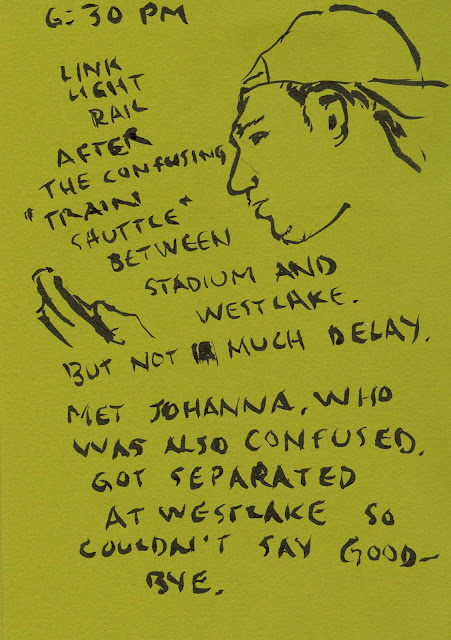 6:30 PM
LINK
LIGHT
RAIL
AFTER
THE CONFUSING
"TRAIN
SHUTTLE"
BETWEEN
STADIUM AND
WESTLAKE.
BUT NOT MUCH DELAY.
MET JOHANNA, WHO
WAS ALSO CONFUSED.
GOT SEPARATED
AT WESTLAKE SO
COULDN'T SAY GOOD-
BYE.